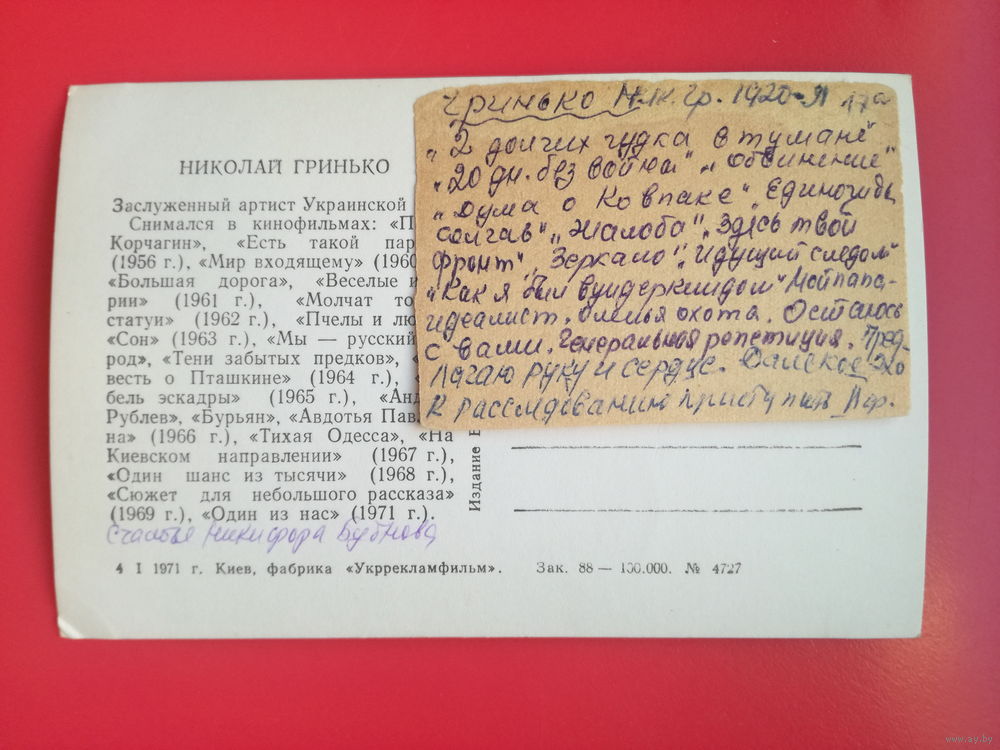 НИКОЛАЙ ГРИНЬКО
Заслуженный артист Украинской
Снимался в кинофильмах: «П
Корчагин», «Есть такой пар
(1956 г.), «Мир входящему» (1960
«Большая дорога», «Веселые и
рии» (1961 г.), «Молчат то
статуи» (1962 г.), «Пчелы и лю
«Сон» (1963 г.), «Мы — русский
род», «Тени забытых предков», «
весть о Пташкине» (1964 г.),
бель эскадры» (1965 г.), «Анд
Рублев», «Бурьян», «Авдотья Пав
на» (1966 г.), «Тихая Одесса», «На
Киевском направлении» (1967 г.),
«Один шанс из тысячи» (1968 г.),
«Сюжет для небольшого рассказа»
(1969 г.), «Один из нас» (1971 г.).
Счастье Никифора Бубнова
4 I 1971 г. Киев, фабрика «Укррекламфильм». Зак. 88 — 100.000. № 4727
Издание
Гринько Ник. Гр. 1920
„2 долгих гудка в тумане"
„20 дн. без войны" „обвинение"
„Дума о Ковпаке". Единожды
солгав" „Жалоба". Здесь твой
фронт". Зеркало". Идущий следом"
„Как я был вундеркиндом" Мой папа-
идеалист. Оленья охота. Остаюсь
с вами. Генеральная репетиция. Пред-
лагаю руку и сердце.
К расследованию приступить
www.ay.by